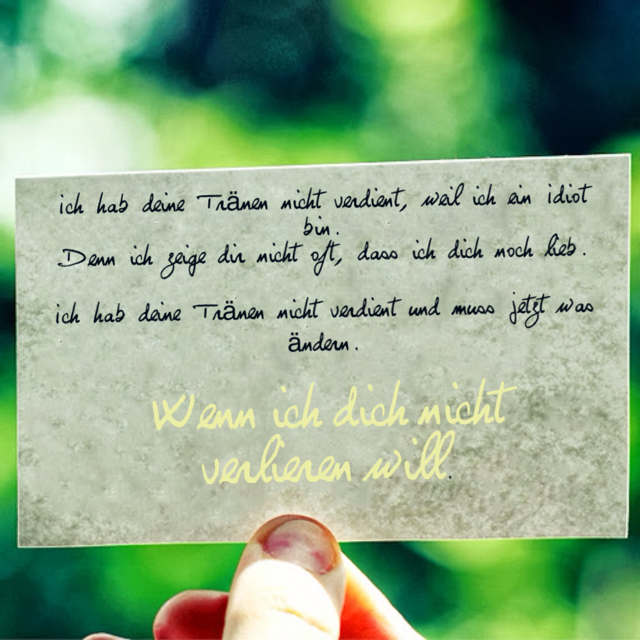 ich hab deine Tränen nicht verdient, weil ich ein idiot
bin.
Denn ich zeige dir nicht oft, dass ich dich noch lieb.
ich hab deine Tränen nicht verdient und muss jetzt was
ändern.
Wenn ich dich nicht
verlieren will.